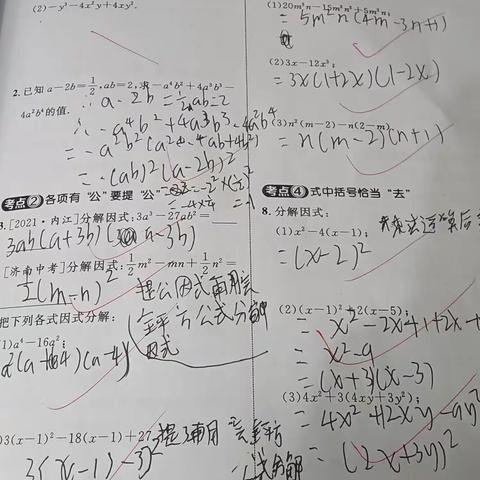 (2)-y³-4x²y+4xy².
2. 已知 a-2b=1/2,ab=2,求-a⁴b²+4a³b³-
4a²b⁴的值.
∵ a-2b=1/2 ab=2
∴ -a⁴b²+4a³b³-4a²b⁴
=-a²b²(a²-4ab+4b²)
=-(ab)²(a-2b)²
=-2²×(1/2)²
=-4×1/4 =-1
考点2 各项有“公”要提“公”
3. [2021·内江]分解因式:3a³-27ab²=
3ab(a+3b)(a-3b)
[济南中考]分解因式:1/2m²-mn+1/2n²=
1/2(m-n)²
提公因式再用完
全平方公式分解
因式
把下列各式因式分解:
(1)a⁴-16a²;
a²(a+4)(a-4)
)3(x-1)²-18(x-1)+27
提3再用完全平方
公式分解
3(x-1-3)²
(1)20m³n-15m²n²+5m²n;
=5m²n(4m-3n+1)
(2)3x-12x³;
=3x(1+2x)(1-2x)
(3)n²(m-2)-n(2-m)
=n(m-2)(n+1)
考点4 式中括号恰当“去”
8. 分解因式:
(1)x²-4(x-1);
=(x-2)²
(2)(x-1)²+2(x-5);
=x²-2x+1+2x-
=x²-9
=(x+3)(x-3)
(3)4x²+3(4xy+3y²);
=4x²+12xy+9y²
=(2x+3y)²